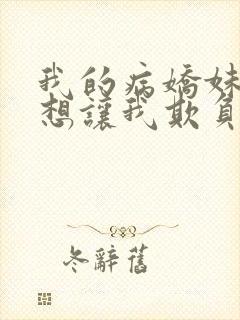 我的病嬌妹
想讓我欺負
冬辭舊